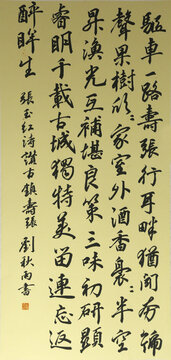 驅車一路壽張行耳畔猶聞夯
聲果樹欣々家室外酒香裊々半空
昇漁光互補堪良策三味初研顯
睿明千載古城獨特美留連忘返
醉眸生
張玉紅詩讚古鎮壽張 劉秋雨書